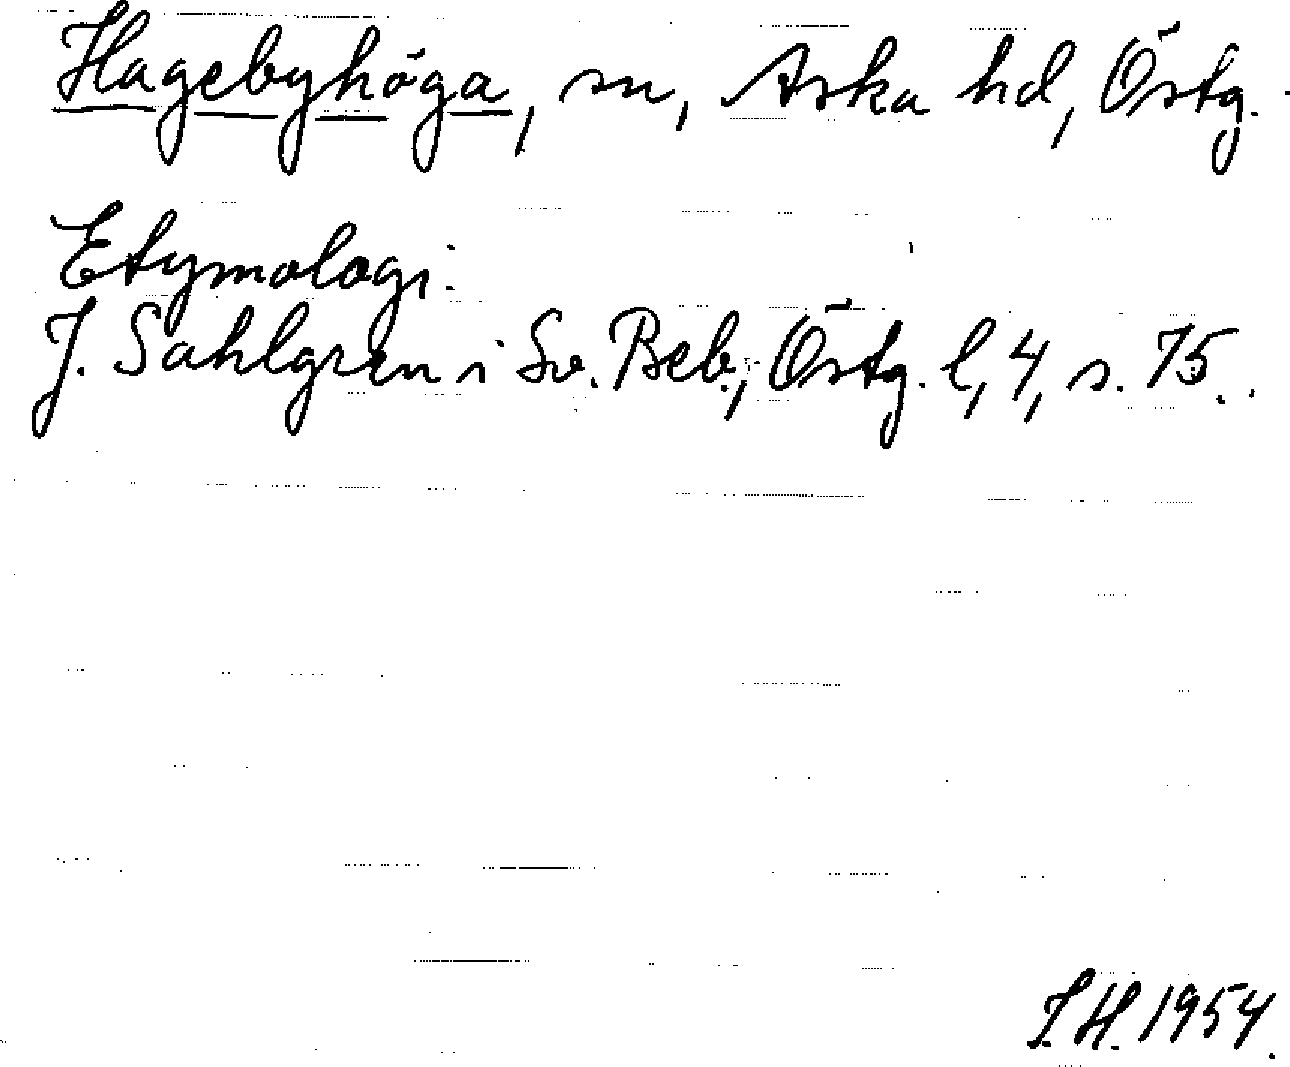 Hagebyhöga, sn, Aska hd, Östg.
Etymologi:
J. Sahlgren i Sv. Beb., Östg. l, 4, s. 75.
I.H. 1954.